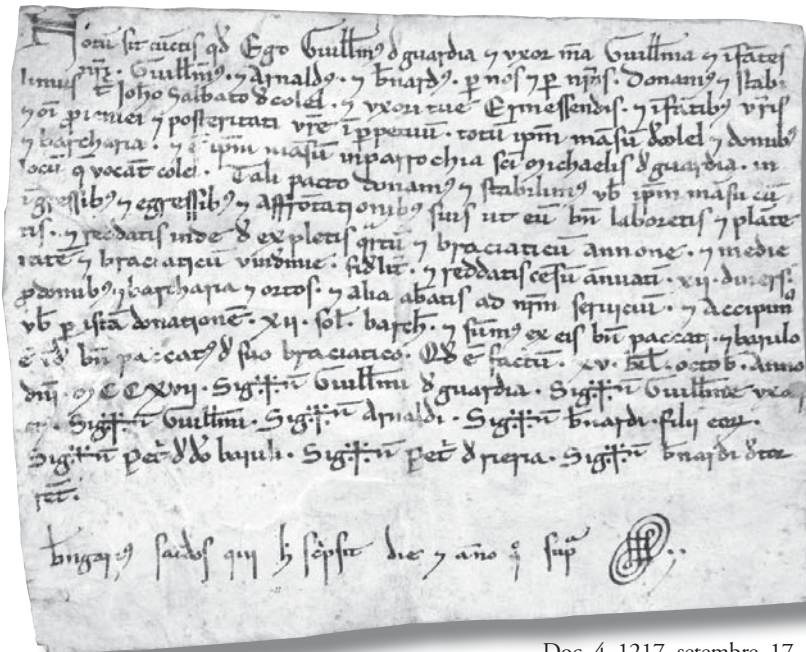 Notū sit cūctis qd Ego Guillms d guardia ⁊ uxor mā Guillma ⁊ ifātes
nr̄i. Guillmus. ⁊ Arnaldus. ⁊ bn̄ardus. p nos ⁊ p nr̄os. Donamus ⁊ stabi
limus t Joho Salbato d colel. ⁊ uxori tue Ermessendis. ⁊ ifātibus uris
⁊ oī pieniei ⁊ posteritati ure ī ppetuū. totū ipm māsū d colel ⁊ domibus
⁊ barcharia. ⁊ ē ipm māsū in parrochia sci Michaelis d guardia. in
locū q vocāt colel. Tali pacto donamus ⁊ stabilimus vb ipm māsū cū
īgressibus ⁊ egressibus ⁊ affrōtationibus suis ut eū bn̄ laboretis ⁊ plāte
tis. ⁊ reddatis inde d expletis q̄rtū ⁊ braciaticū annone. ⁊ medie
tatē ⁊ braciaticū vindimie. fidlit. ⁊ reddatis cēsū annuatī. xii. diners.
p domibus ⁊ barcharia ⁊ ortos. ⁊ alia abatis ad nr̄m seruiciū. ⁊ Accipimus
vb p istā donationē. xii. sol. barch. ⁊ sumus ex eis bn̄ paccati. ⁊ baiulo
ē id bn̄ paccatus d suo braciatico. Qd ē factū. xv. kl. octob. Anno
dni. m CC xvii. Sig‡nū Guillmi d guardia. Sig‡nū Guillme uxo
ris. Sig‡nū Guillmi. Sig‡nū Arnaldi. Sig‡nū bn̄ardi. filii eor.
Sig‡nū Pet d do baiuli. Sig‡nū Pet d rieria. Sig‡nū bn̄ardi d tor
ret.
bngarius saidos qui h scpsit die ⁊ āno q supa
Doc. 4. 1217, setembre, 17.